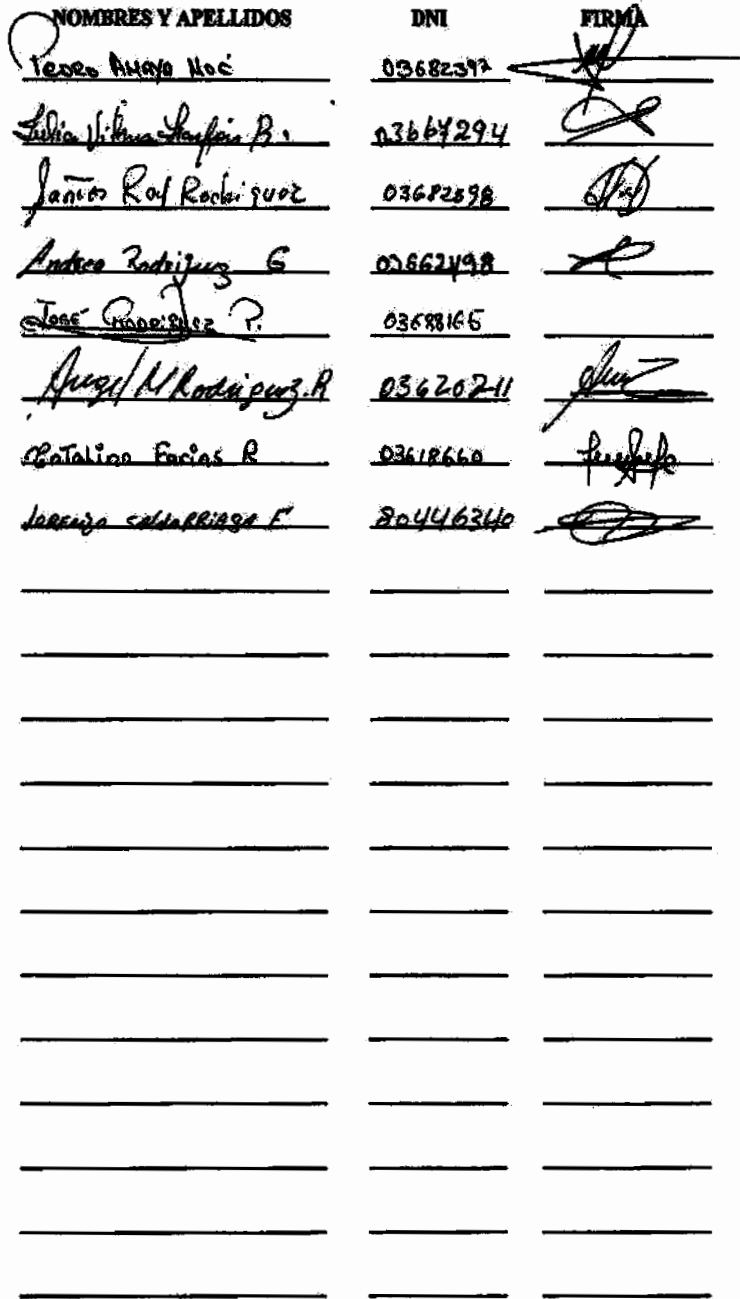 NOMBRES Y APELLIDOS DNI FIRMA
Pedro Amaya Noé 03682392
Julia Vilma B. 03667294
Santos Rodriguez 03682898
Andres Rodriguez G 03662498
José Rodriguez P. 03688165
Angel M Rodriguez. R 03620211
Catalino Farias R 03618660
Lorenzo Saldarriaga F 80446340